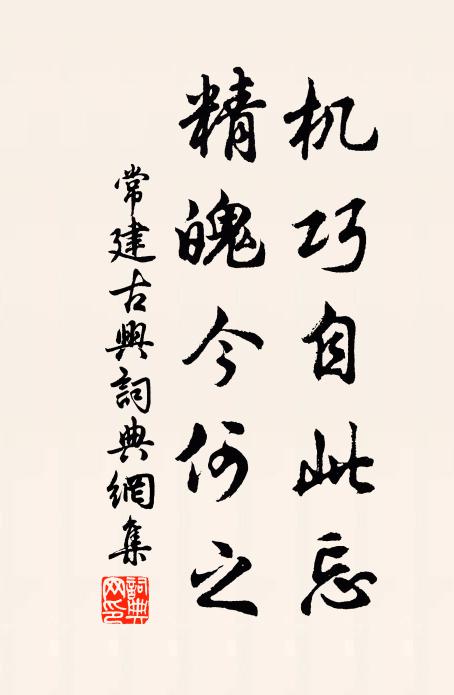 机巧自此忘
精魄今何之
常建古興詞典網集
詞典
网印